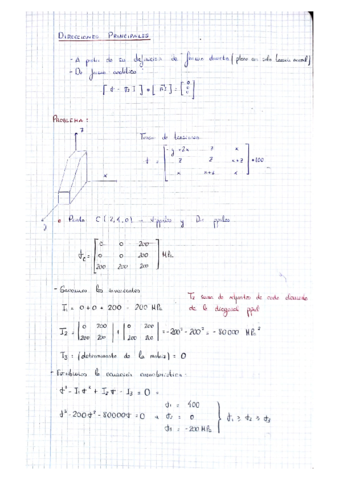 DIRECCIONES PRINCIPALES
- A partir de su definición de forma directa (plano en solo tensión normal)
- De forma analítica
PROBLEMA:
Tensor de tensiones
z
x
y
• Punto C (2,4,0) → σ ppales y Dir ppales
0 0 200
0 0 200
200 200 200
MPa
- Buscamos los invariantes
I₁ = 0 + 0 + 200 = 200 MPa
I₂ suma de adjuntos de cada elemento de la diagonal ppal
I₂ = | 0 200 | + | 0 200 | = -200² - 200² = -80000 MPa²
200 200 200 200
I₃ = (determinante de la matriz) = 0
- Resolvemos la ecuación característica:
σ³ - I₁σ² + I₂σ - I₃ = 0
σ³ - 200σ² - 80000σ = 0
σ₁ = 400
σ₂ = 0
σ₃ = -200 MPa
σ₁ ≥ σ₂ ≥ σ₃